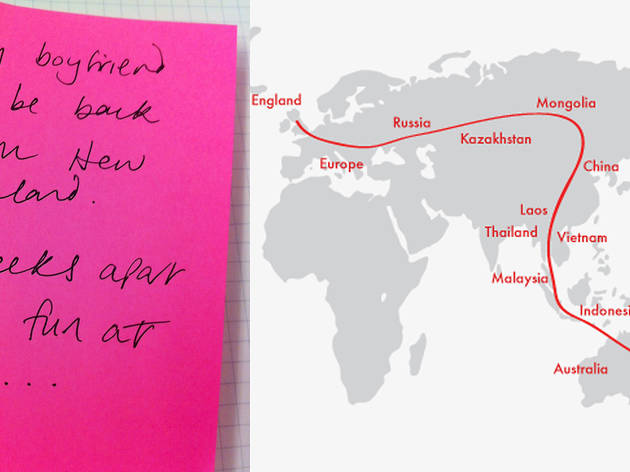 boyfriend
be back
New
land.
eeks apart
fun at
...
England
Mongolia
Russia
Kazakhstan
Europe
China
Laos
Thailand
Vietnam
Malaysia
Indonesi
Australia